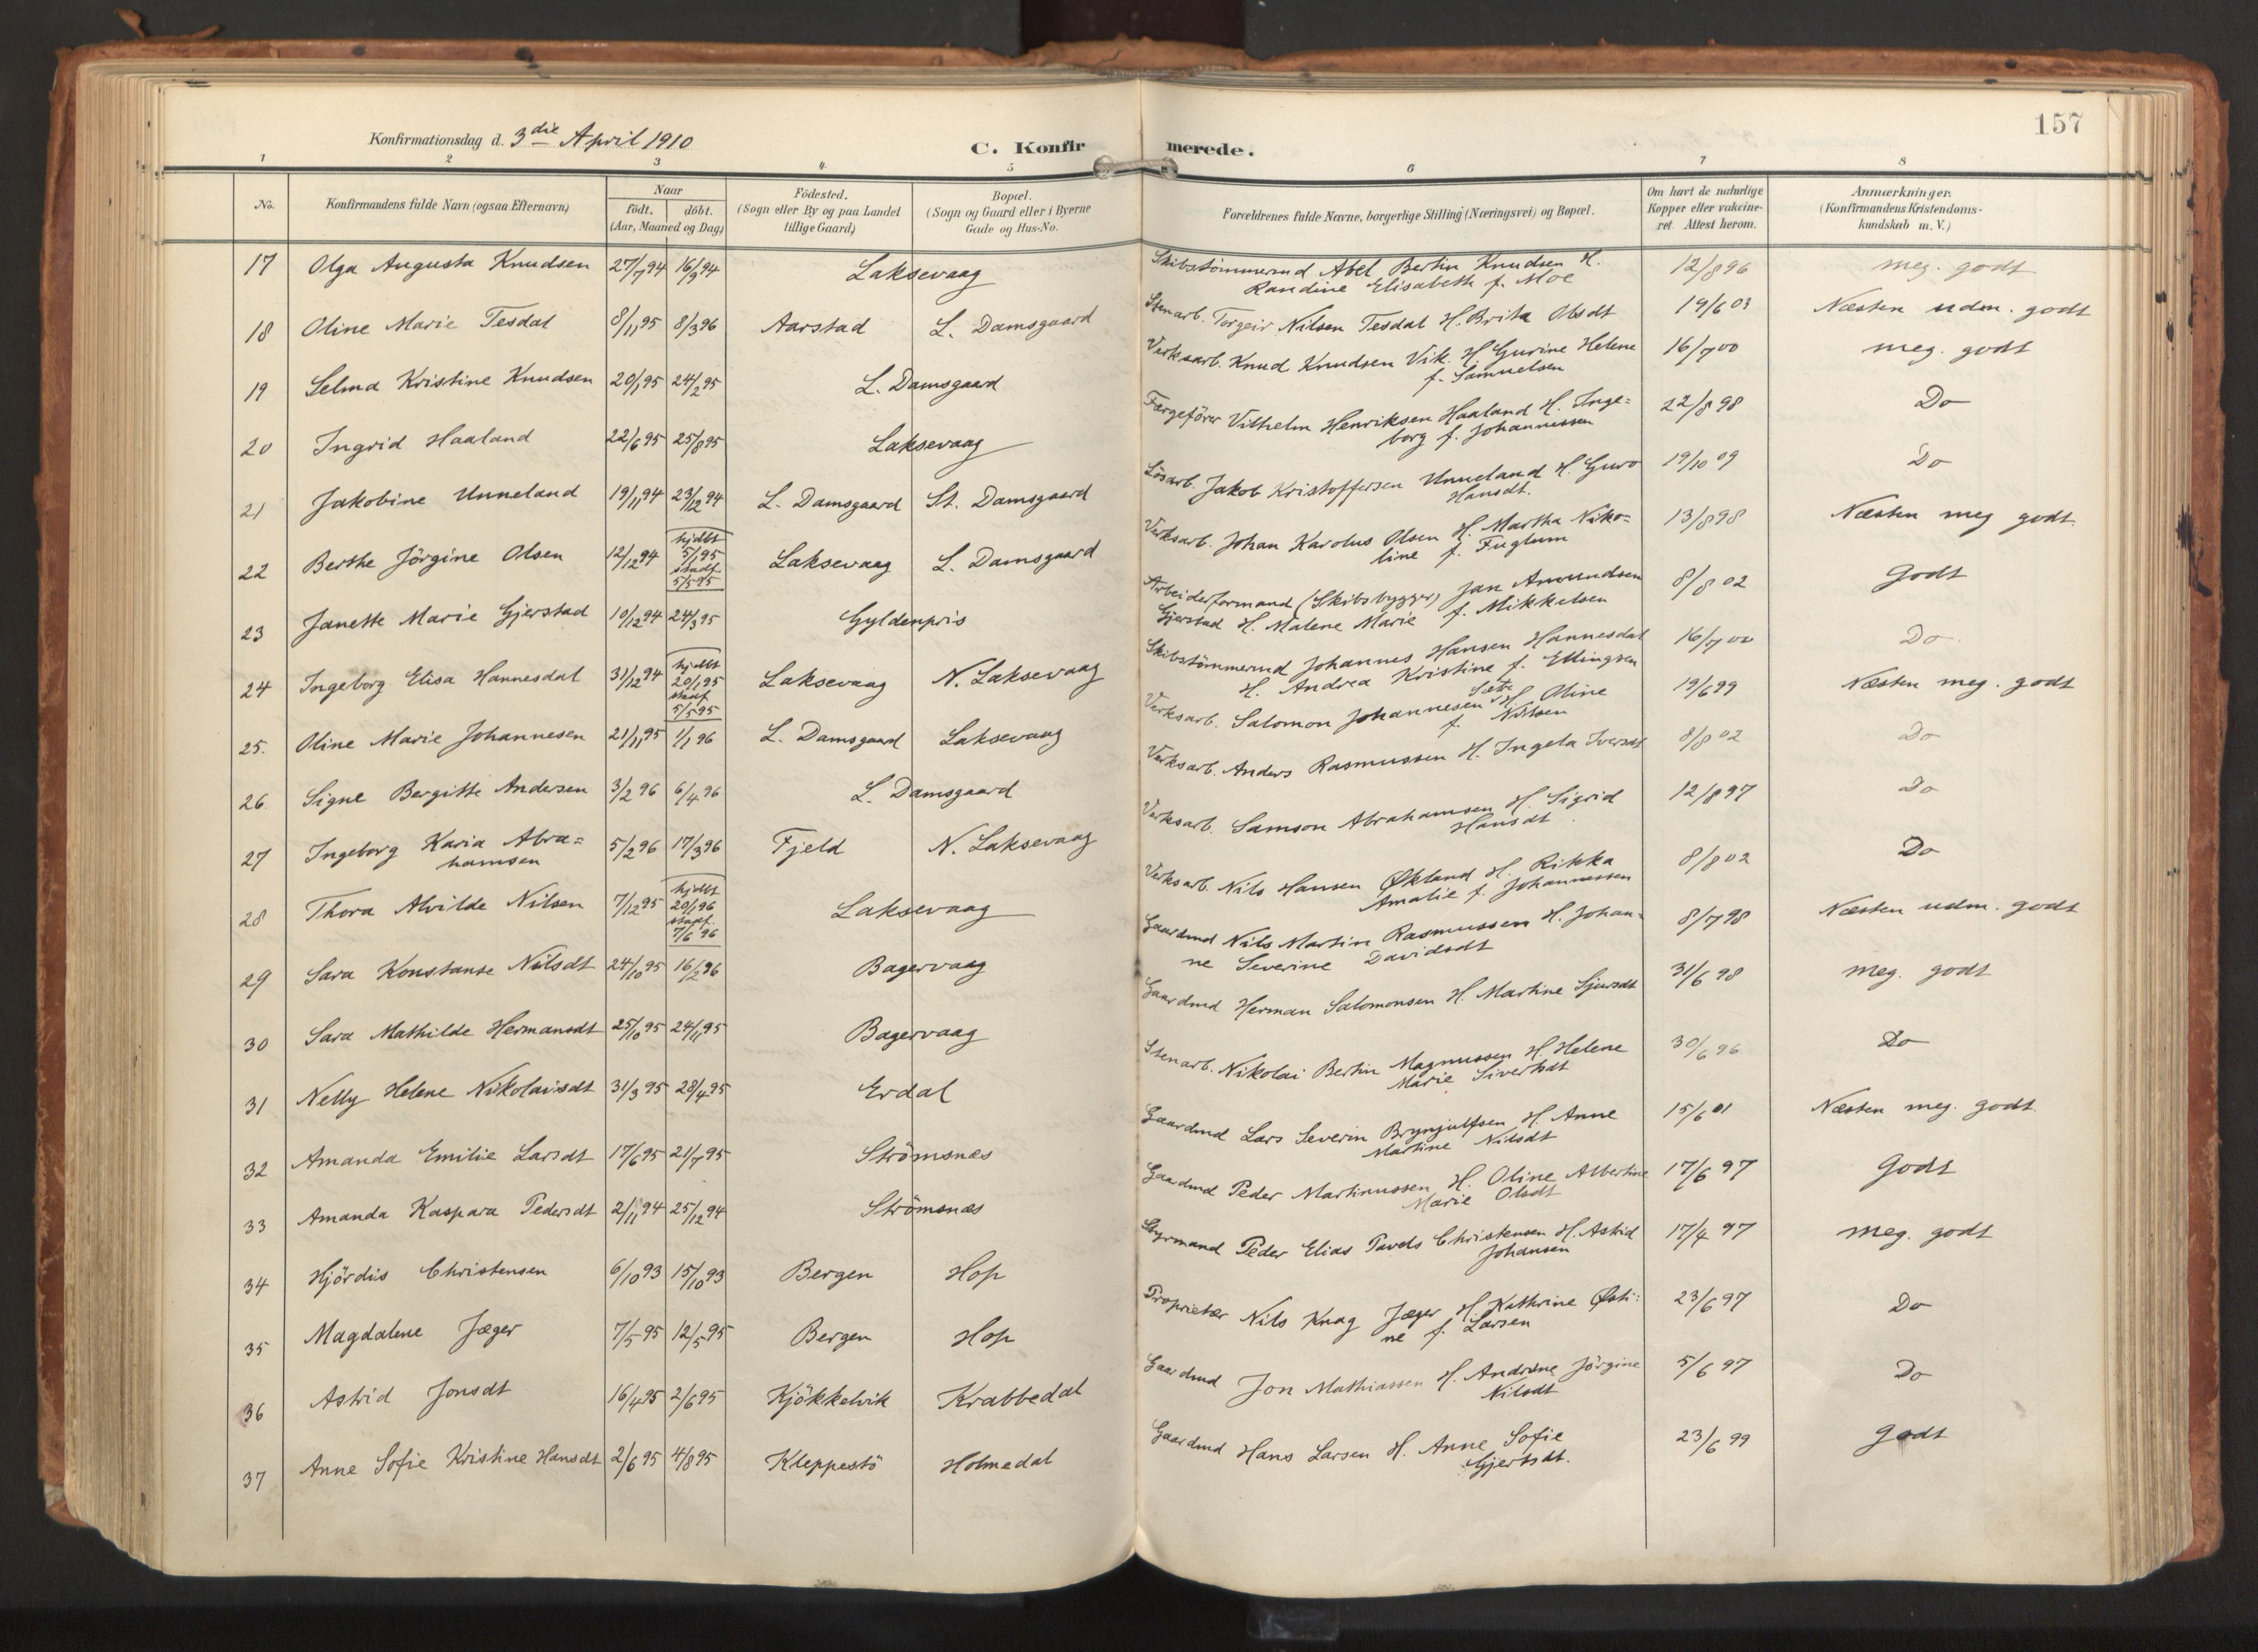 157
Konfirmationsdag d. 3die April 1910
C. Konfirmerede.
1 2 3 4 5 6 7 8
No. Konfirmandens fulde Navn (ogsaa Efternavn) Naar födt. döbt. (Aar, Maaned og Dag) Födested. (Sogn eller By og paa Landet tillige Gaard) Bopæl. (Sogn og Gaard eller i Byerne Gade og Hus-No. Forældrenes fulde Navne, borgerlige Stilling (Næringsvei) og Bopæl. Om havt de naturlige Kopper eller vakcineret. Attest herom. Anmærkninger. (Konfirmandens Kristendomskundskab m. V.)
17 Olga Augusta Knudsen 27/7 94 16/9 94 Laksevaag Skibstömmermd Abel Bertin Knudsen H. Randine Elisabeth f. Moe 12/8 96 meg. godt
18 Oline Marie Tesdal 8/11 95 8/3 96 Aarstad L. Damsgaard Stenarb. Torgeir Nilsen Tesdal H. Brita Olsdt 19/6 03 Næsten udm. godt
19 Selma Kristine Knudsen 20/1 95 24/2 95 L. Damsgaard Verksarb. Knud Knudsen Vik. H. Gurine Helene f. Samuelsen 16/7 00 meg. godt
20 Ingrid Haaland 22/6 95 25/8 95 Laksevaag Færgeförer Vilhelm Henriksen Haaland H. Inge= borg f. Johannessen 22/8 98 Do
21 Jakobine Unneland 19/11 94 23/12 94 L. Damsgaard St. Damsgaard Lösarb. Jakob Kristoffersen Unneland H. Guro Hansdt. 19/10 09 Do
22 Berthe Jörgine Olsen 12/12 94 hjdbt 5/1 95 stadf. 5/5 95 Laksevaag L. Damsgaard Verksarb. Johan Karolus Olsen H. Martha Niko= line f. Fuglum 13/8 98 Næsten meg godt.
23 Janette Marie Gjerstad 10/12 94 24/3 95 Gyldenpris Arbeiderformand (Skibsbygger) Jan Amundsen Gjerstad H. Malene Marie f. Mikkelsen 8/8 02 Godt
24 Ingeborg Elisa Hannesdal 31/12 94 hjdbt 20/1 95 stadf. 5/5 95 Laksevaag N. Laksevaag Skibstömmermd Johannes Hansen Hannesdal H. Andrea Kristine f. Ellingsen 16/7 00 Do
25. Oline Marie Johannesen 21/11 95 1/1 96 L. Damsgaard Laksevaag Verksarb. Salomon Johannesen Sæte H. Oline f. Nilsen 19/6 99 Næsten meg. godt
26. Signe Bergitte Andersen 3/2 96 6/4 96 L. Damsgaard Verksarb. Anders Rasmussen H. Ingela Iversdt 8/8 02 Do
27 Ingeborg Karia Abra= hamsen 5/2 96 17/3 96 Fjeld N. Laksevaag Verksarb. Samson Abrahamsen H. Sigrid Hansdt 12/8 97 Do
28 Thora Alvilde Nilsen 7/12 95 hjdbt 20/1 96 stadf. 7/6 96 Laksevaag Verksarb. Nils Hansen Økland H. Rikka Amalie f. Johannessen 8/8 02 Do
29 Sara Konstanse Nilsdt 24/10 95 16/2 96 Bagervaag Gaardmd Nils Martin Rasmussen H. Johan= ne Severine Davidsdt 8/7 98 Næsten udm. godt
30 Sara Mathilde Hermansdt 25/10 95 24/11 95 Bagervaag Gaardmd Herman Salomonsen H. Martine Sjursdt 31/6 98 meg. godt
31 Nelly Helene Nikolaisdt 31/3 95 28/4 95 Erdal Stenarb. Nikolai Bertin Magnussen H. Helene Marie Sivertsdt 30/6 96 Do
32 Amanda Emilie Larsdt 17/6 95 21/7 95 Strömsnæs Gaardmd Lars Severin Brynjulfsen H. Anne Martine Nilsdt 15/6 01 Næsten meg. godt.
33 Amanda Kaspara Pedersdt 2/11 94 25/12 94 Strömsnæs Gaardmd Peder Martinussen H. Oline Albertine Marie Olsdt 17/6 97 Godt
34 Hjördis Christensen 6/10 93 15/10 93 Bergen Hop Styrmand Peder Elias Pavels Christensen H. Astrid Johansen 17/4 97 meg. godt
35 Magdalene Jæger 7/5 95 12/5 95 Bergen Hop Proprietær Nils Knag Jæger H. Kathrine Østi= ne f. Larsen 23/6 97 Do
36 Astrid Jonsdt 16/4 95 2/6 95 Kjökkelvik Krabbedal Gaardmd Jon Mathiassen H. Andrine Jörgine Nilsdt 5/6 97 Do
37 Anne Sofie Kristine Hansdt 2/6 95 4/8 95 Kleppestö Holmedal Gaardmd Hans Larsen H. Anne Sofie Gjertsdt. 23/6 99 Godt